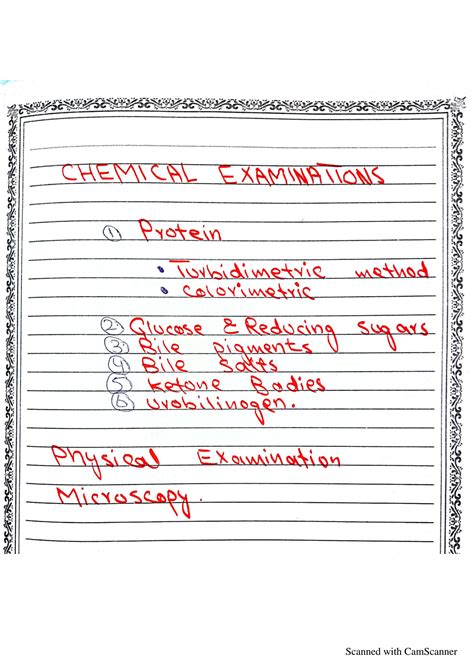 CHEMICAL EXAMINATIONS
① Protein
• Turbidimetric method
• Colorimetric
② Glucose & Reducing sugars
③ Bile pigments
④ Bile Salts
⑤ Ketone Bodies
⑥ Urobilinogen.
Physical Examination
Microscopy.
Scanned with CamScanner